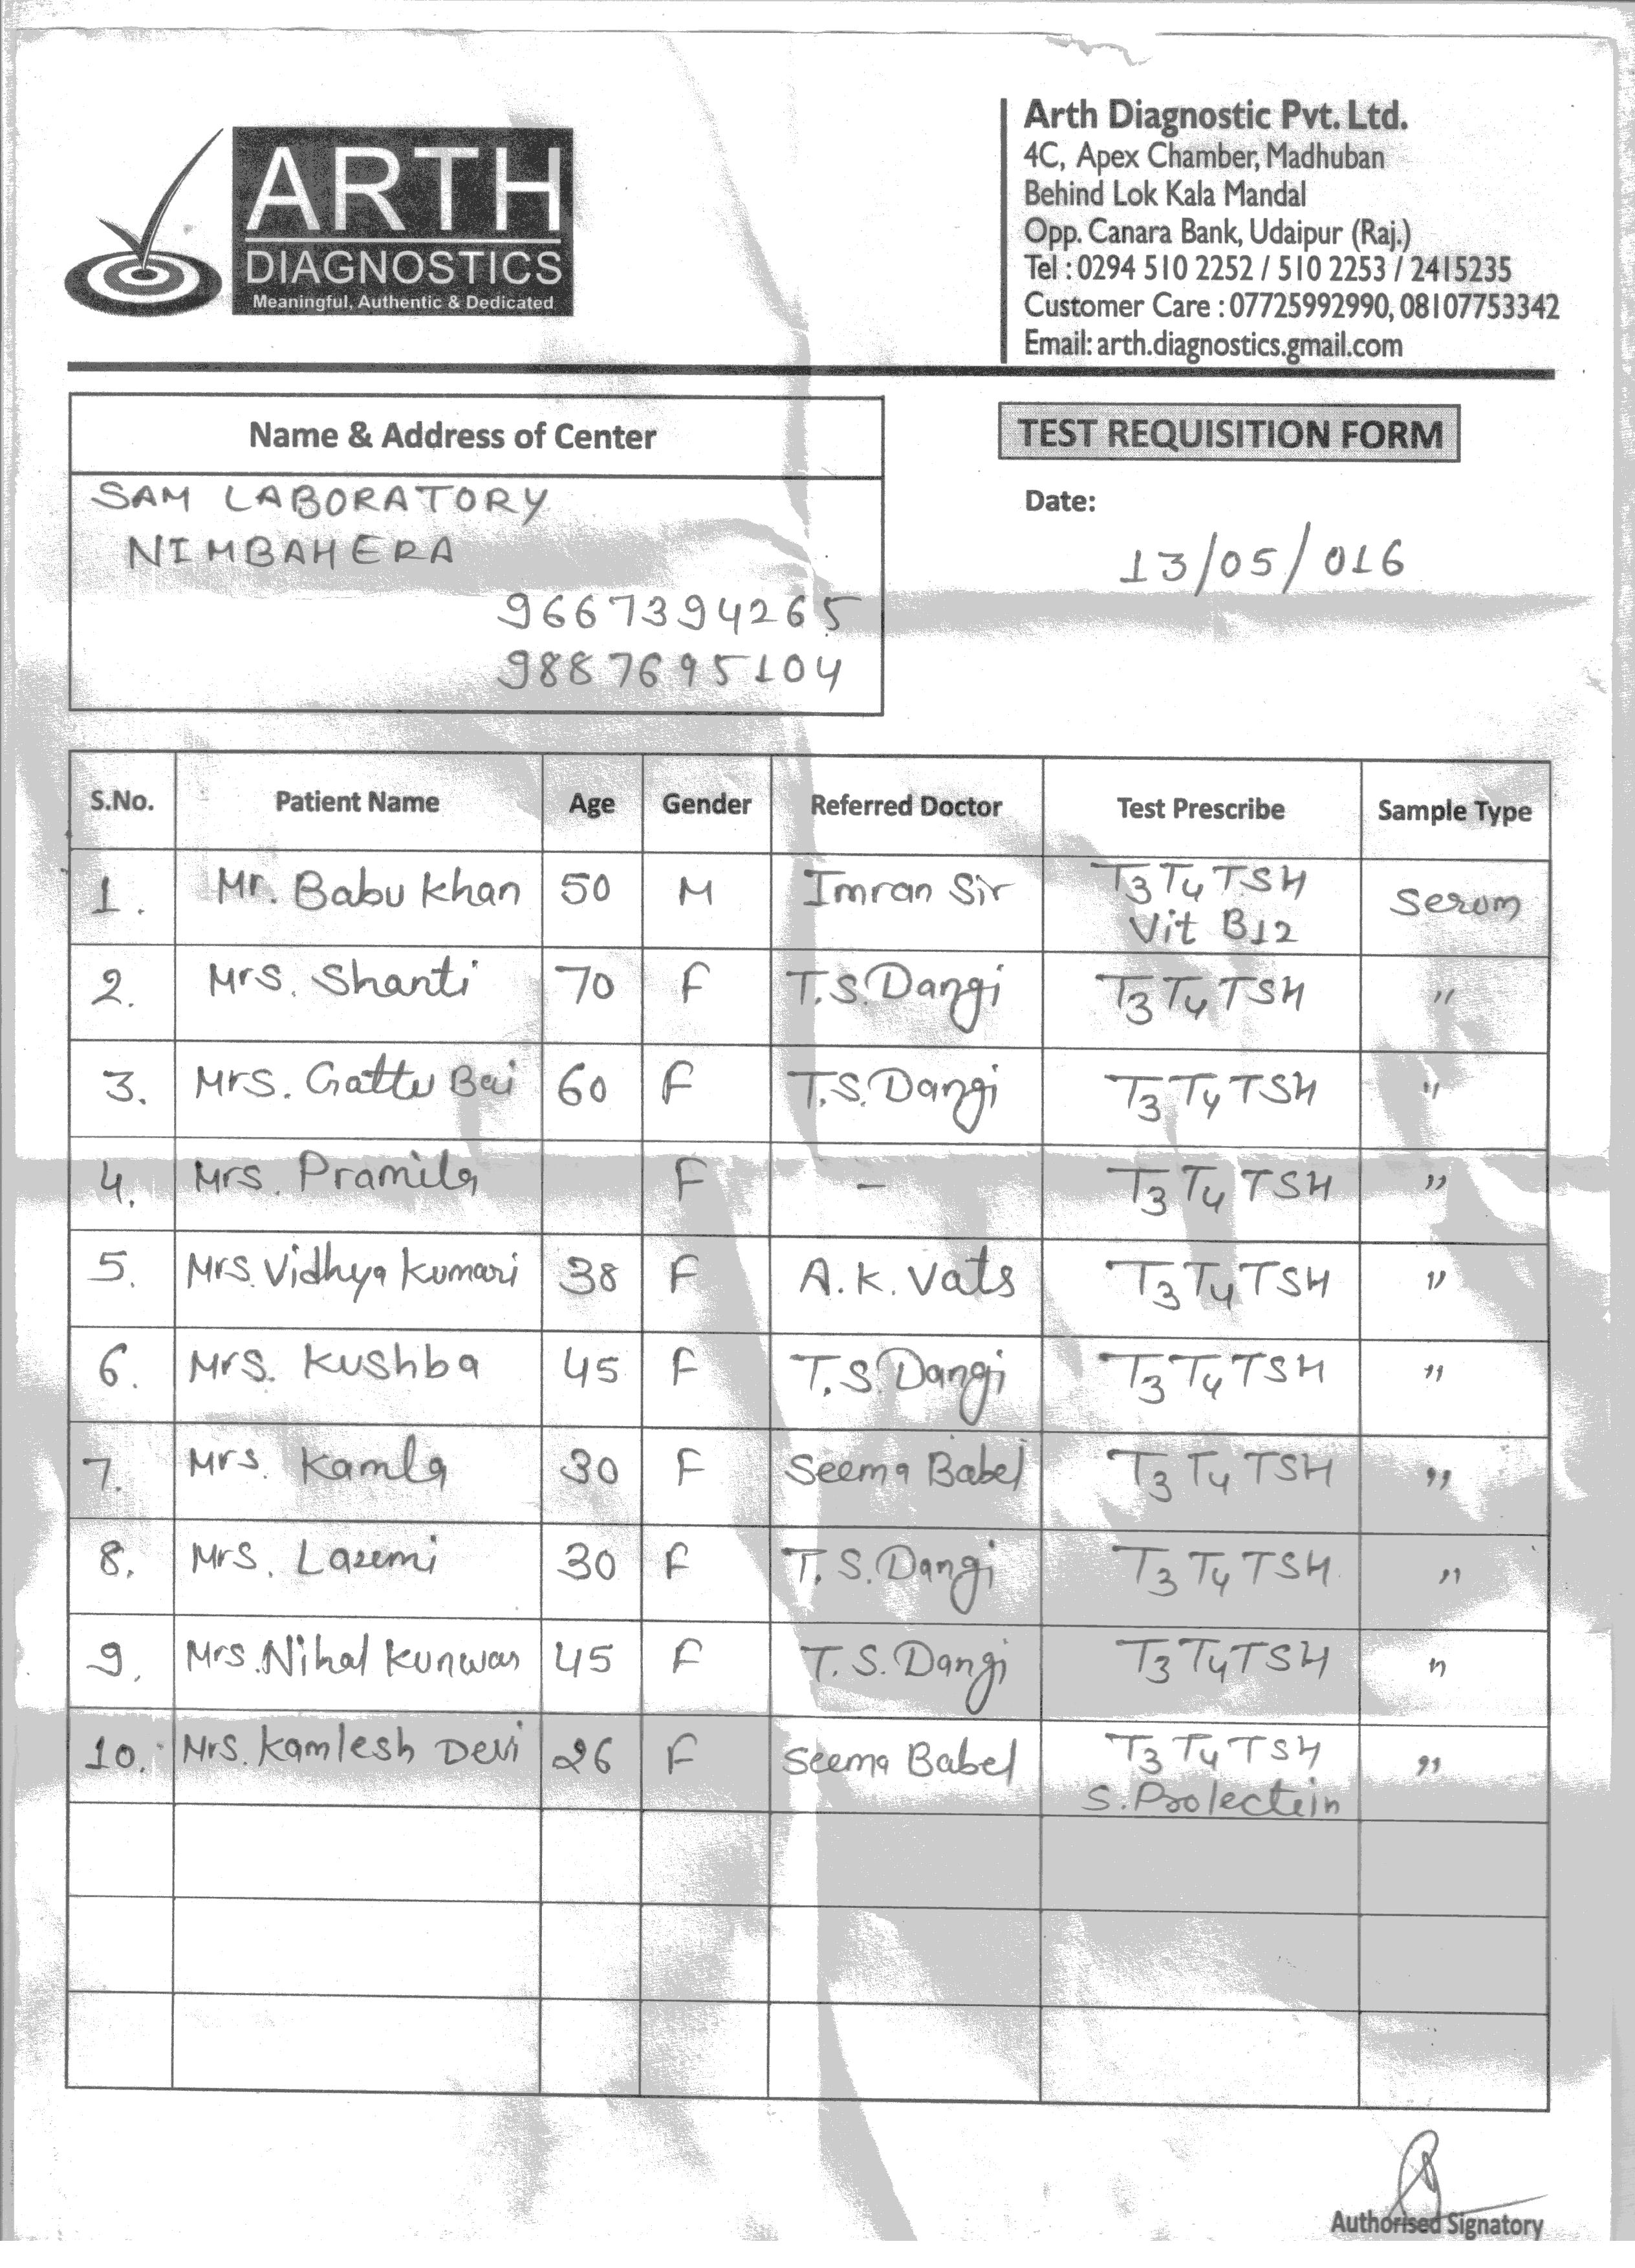 ARTH
DIAGNOSTICS
Meaningful, Authentic & Dedicated
Arth Diagnostic Pvt. Ltd.
4C, Apex Chamber, Madhuban
Behind Lok Kala Mandal
Opp. Canara Bank, Udaipur (Raj.)
Tel : 0294 510 2252 / 510 2253 / 2415235
Customer Care : 07725992990, 08107753342
Email: arth.diagnostics.gmail.com
Name & Address of Center
SAM LABORATORY
NIMBAHERA
9667394265
9887695104
TEST REQUISITION FORM
Date:
13/05/016
S.No. Patient Name Age Gender Referred Doctor Test Prescribe Sample Type
1. Mr. Babu Khan 50 M Imran Sir T3 T4 TSH Serum
Vit B12
2. Mrs. Shanti 70 F T.S. Dangi T3 T4 TSH "
3. Mrs. Gattu Bai 60 F T.S. Dangi T3 T4 TSH "
4. Mrs. Pramila F - T3 T4 TSH "
5. Mrs. Vidhya Kumari 38 F A.K. Vats T3 T4 TSH "
6. Mrs. Kushba 45 F T.S. Dangi T3 T4 TSH "
7. Mrs. Kamla 30 F Seema Babel T3 T4 TSH "
8. Mrs. Laxmi 30 F T.S. Dangi T3 T4 TSH "
9. Mrs. Nihal Kunwar 45 F T.S. Dangi T3 T4 TSH "
10. Mrs. Kamlesh Devi 26 F Seema Babel T3 T4 TSH "
S. Prolectin
Authorised Signatory